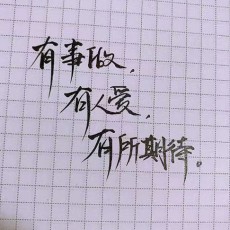 有事做，
有人爱，
有所期待。